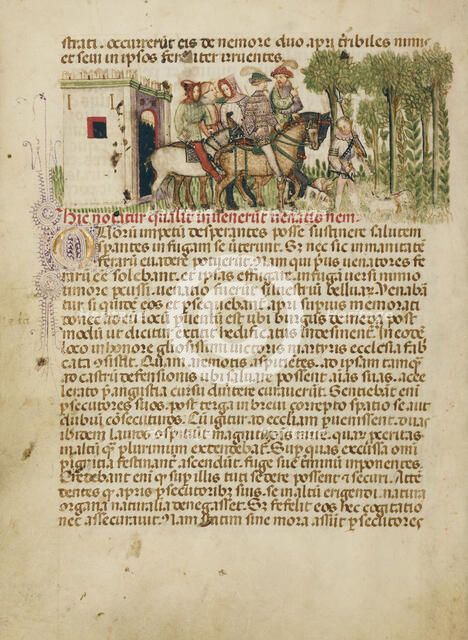 strati. occurrerūt eis de nemore duo apri tribiles nimis
et seui in ipsos feraliter irruentes.
Hic notatur qualit inuenerūt uenatis nem.
Illorū impetū desperantes posse sustinere salutem
sperantes in fugam se uerterunt. Sz nec sic immanitatē
ferarū euadere potuerūt. Nam qui prius uenatores fe
rarū eē solebant. et ipsas effugare. in fugā uersi nimio
timore percussi. uenatio fuerūt siluestriū belluar. Venabā
tur si quidē eos et psequebant apri superius memorati
donec uentū ē ad locū
modum ut dicitur extitit hedificatū. In eodē
loco in honore gloriosissimi uictoris martyris ecclesia fab
cata consistit. Quam nemoris asperitates. ad ipsam tamq
ad castrū defensionis ubi saluare possent aīas suas. acce
lerato per angusta cursu diuertere curauerūt. Sentiebāt eni
psecutores suos post terga in breui correpto spatio se aut
dubio consecuturos. Cū igitur ad ecclesiam puenissent. duas
ibidem lauros conspiciūt magnitudinis mire. quar proceritas
in altū quam plurimum extendebat. Super quas excussa omī
pigritia festinant ascendūt. fuge sue terminū imponentes.
Credebant eni quod super illis tuti sedere possent et securi. Atte
dentes quod apris psecutoribus suis. se in altū erigendi. natura
organa naturalia denegasset. Sz fefellit eos hec cogitatio
nec assecurauit. Nam statim sine mora assūt psecutores